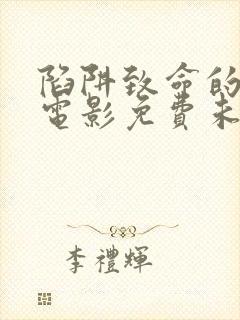 陷阱致命的
電影免費未
李禮輝